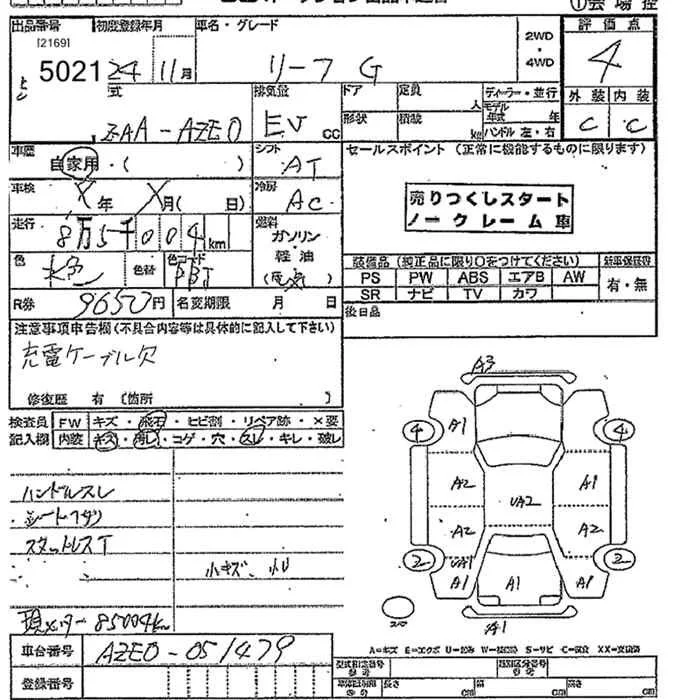 ①会場控
出品番号 初度登録年月 車名・グレード 2WD・4WD 評価点
[2169]
5021 24 11月 リーフ G 4
外装 内装
C C
型式 排気量 ドア 定員 人 ディーラー・並行
ZAA-AZE0 EV cc 形状 積載 kg モデル年式 年
ハンドル 左・右
車歴 自家用・( ) シフト AT セールスポイント (正常に機能するものに限ります)
車検 年 月( 日) 冷房 AC
売りつくしスタート
ノークレーム車
走行 8万5千004km 燃料 ガソリン・軽油
色 色替 カラーコード
装備品 (純正品に限り○をつけてください) 新車保証書
PS PW ABS エアB AW 有・無
SR ナビ TV カワ
R券 9650円 名変期限 月 日 後日品
注意事項申告欄(不具合内容等は具体的に記入して下さい)
充電ケーブル欠
修復歴 有 〔箇所 〕
検査員 FW キズ・飛石・ヒビ割・リペア跡・×要
記入欄 内装 キズ・汚レ・コゲ・穴・スレ・キレ・破レ
ハンドルスレ
シート
スタットレスT
小キズ、
現メーター85004km
A3
4 A1 4
A2 UA2 A1
A2 A2
2 UA1 2
A1 A1 A1
A1
A=キズ E=エクボ S=サビ C=腐食
車台番号 AZE0-051479
登録番号
型式指定番号 類別区分番号
長さ cm 幅 cm 高さ cm